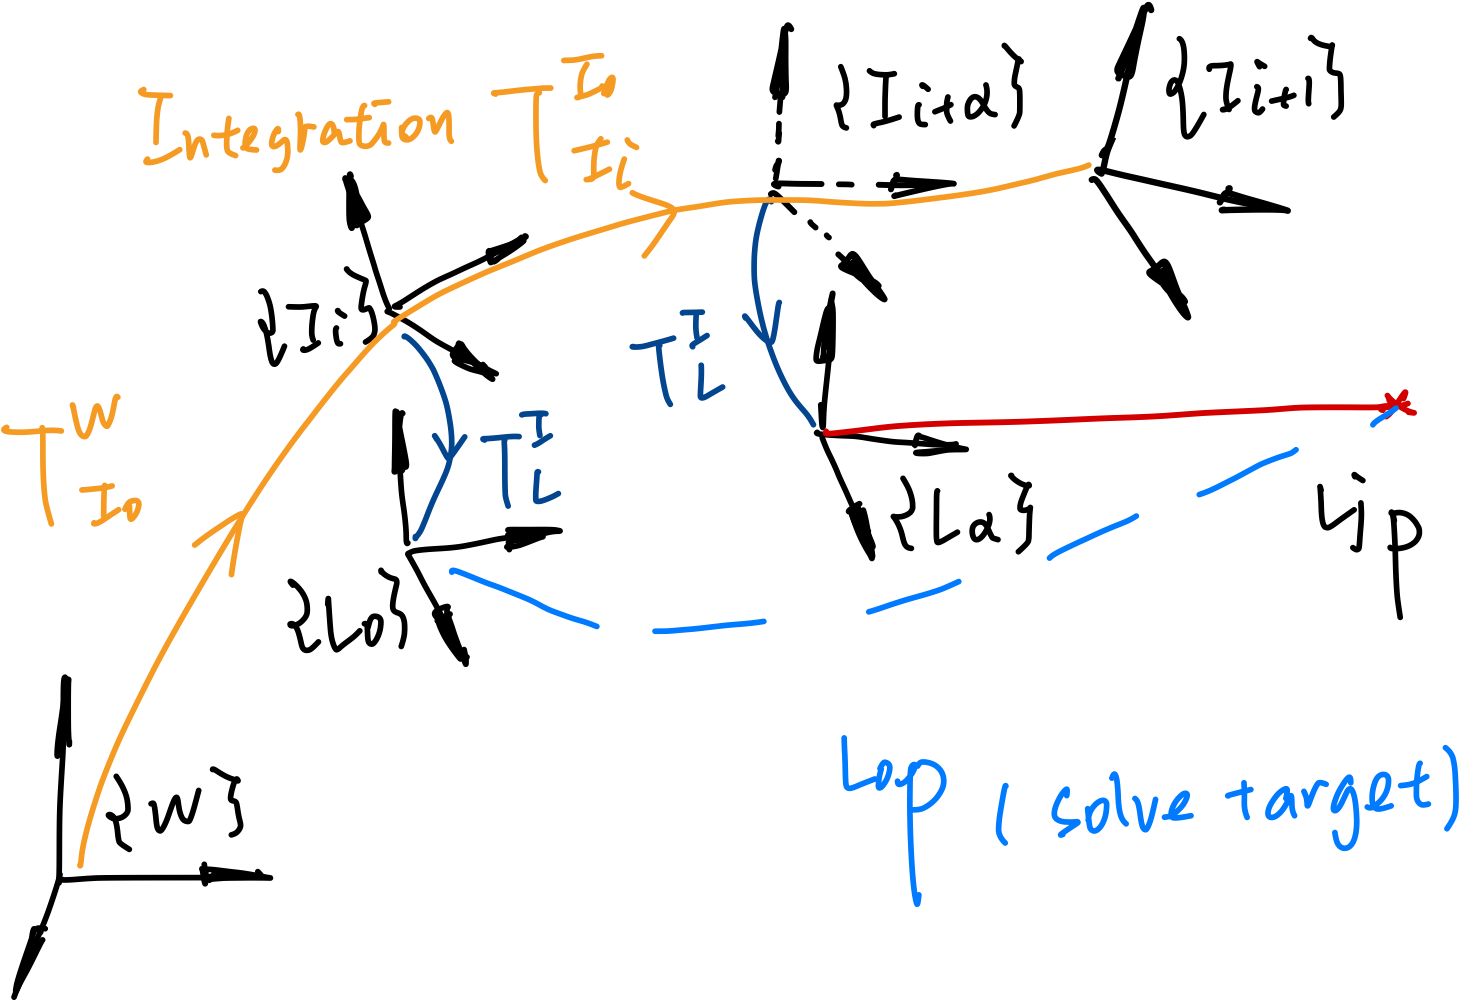 Integration T^{I_0}_{I_i}
{I_{i+α}}
{I_{i+1}}
{I_i}
T^I_L
T^W_{I_0}
T^I_L
{L_α}
^{L_j}p
{L_0}
{W}
^{L_0}p (solve target)